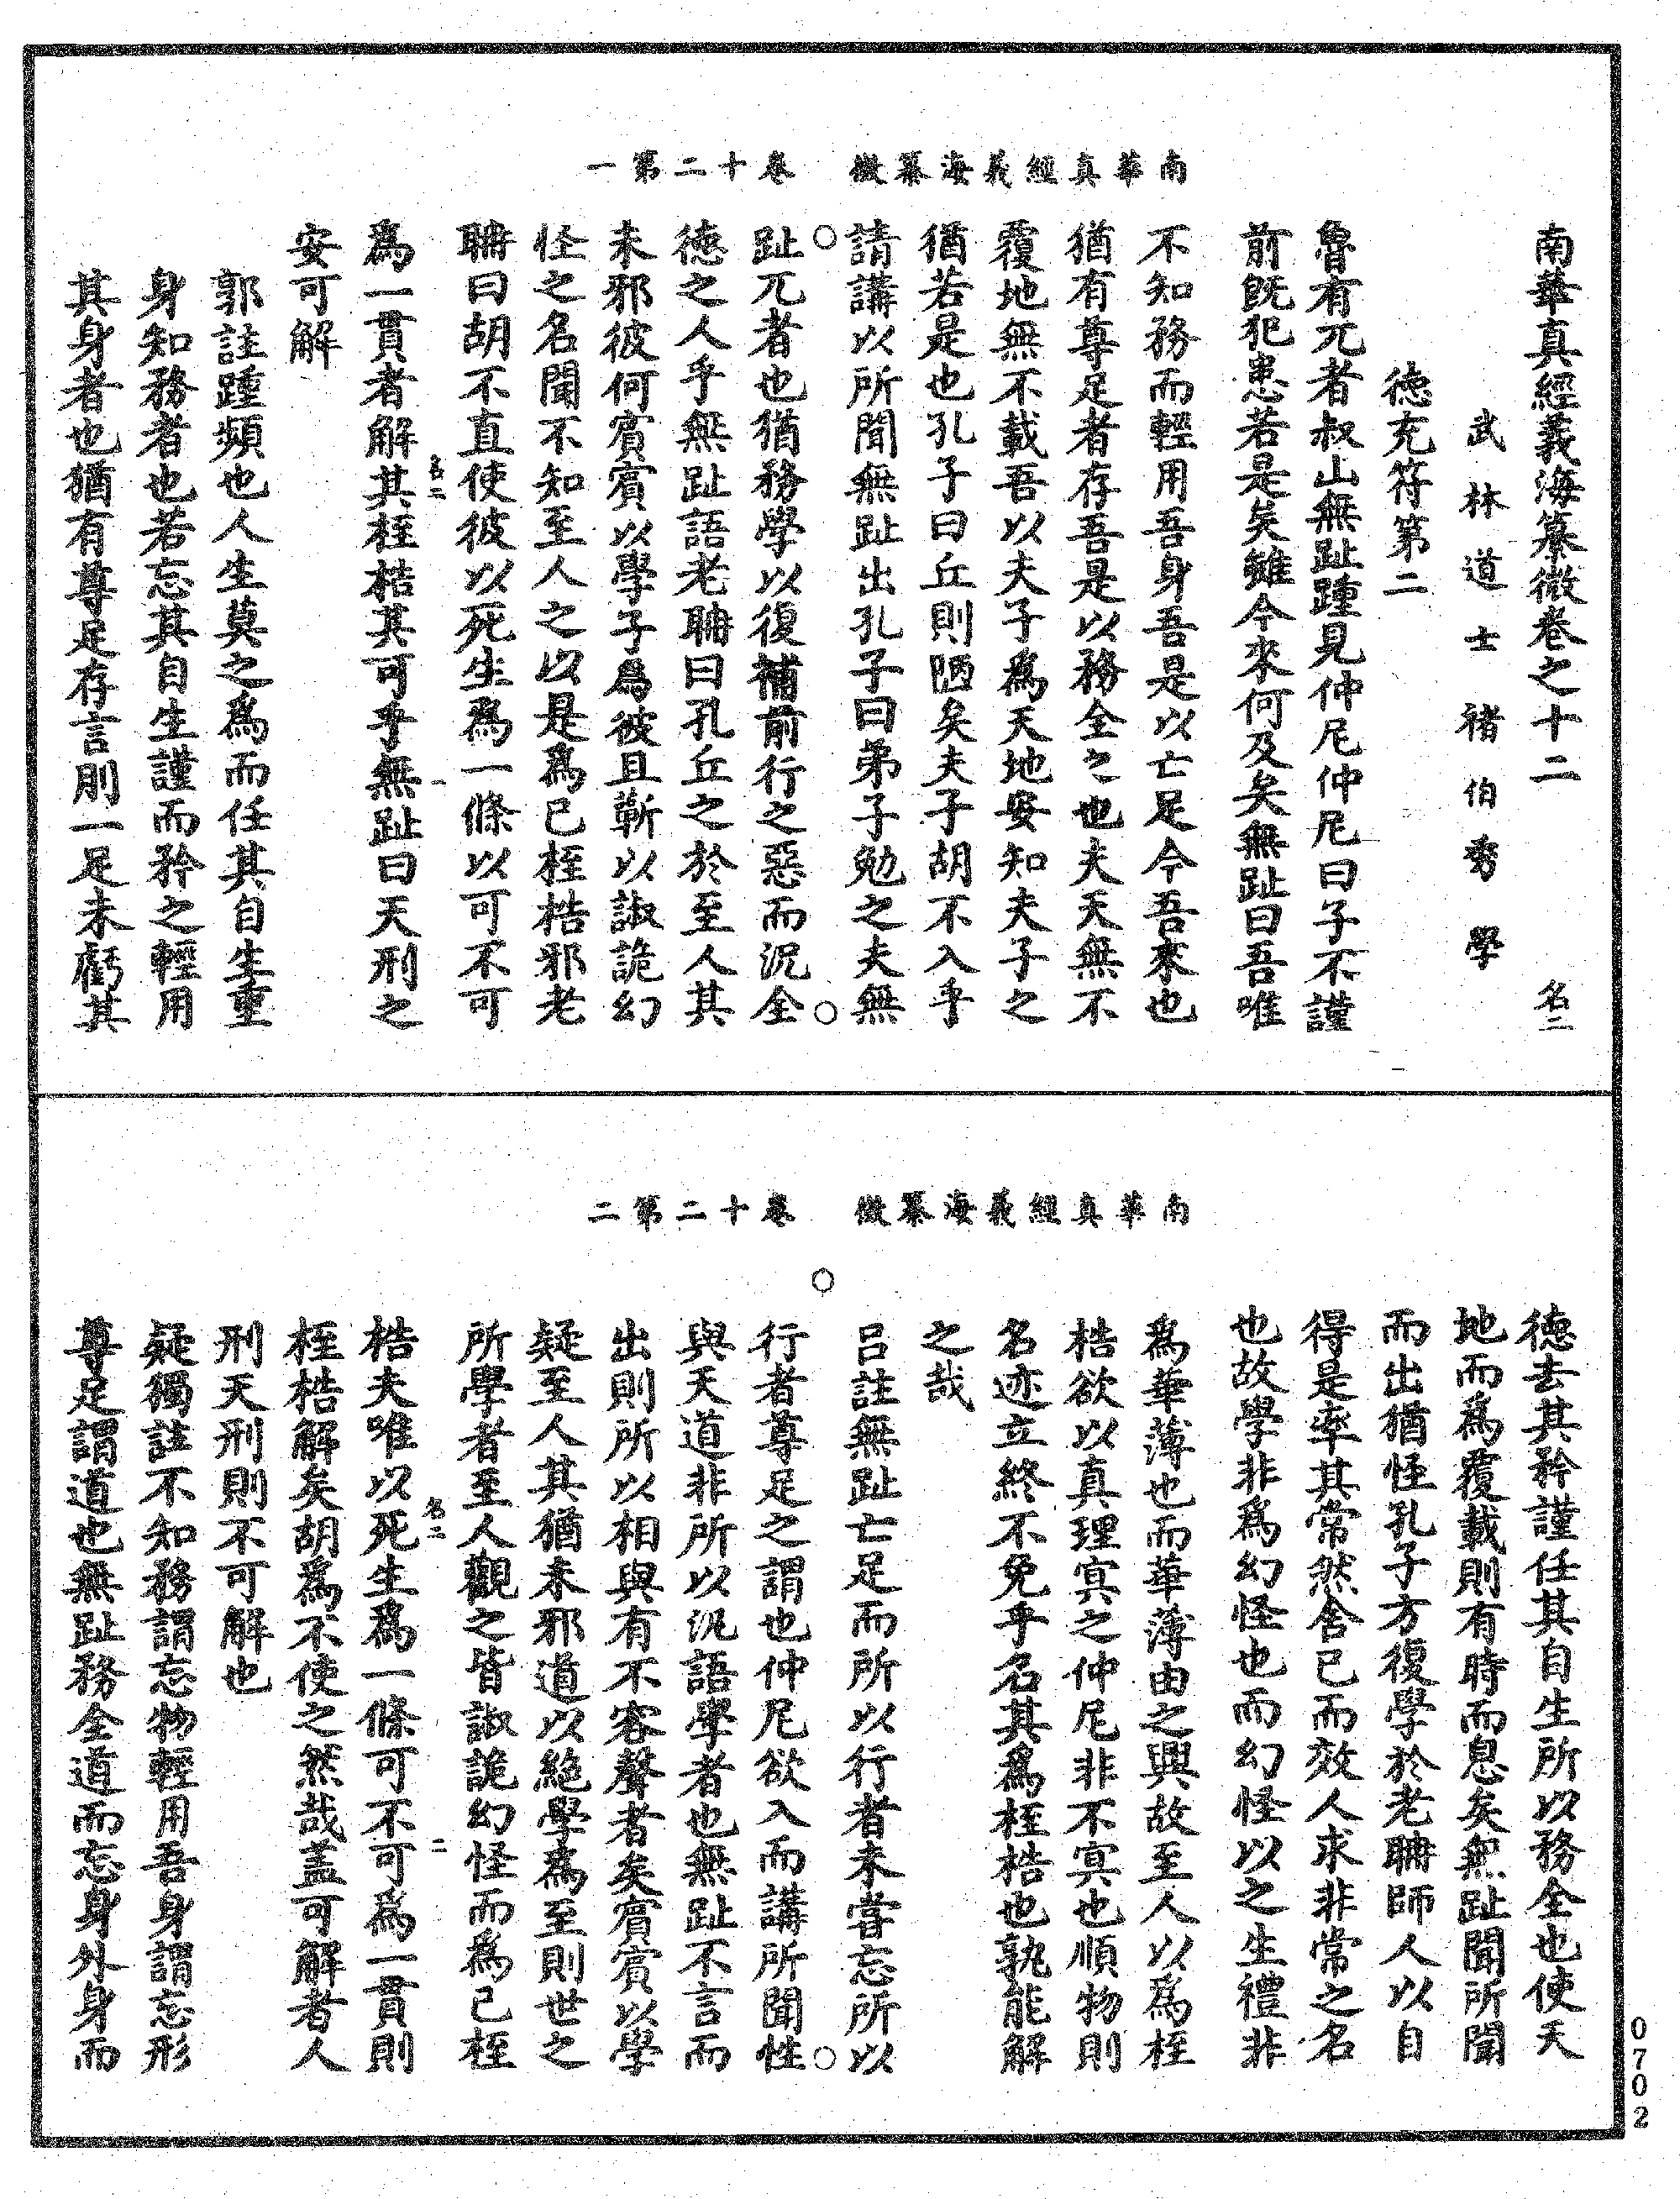 南華真經義海纂微　卷十二第一
南華真經義海纂微卷之十二　名二
武林道士褚伯秀學
德充符第二
魯有兀者叔山無趾踵見仲尼仲尼曰子不謹
前旣犯患若是矣雖今來何及矣無趾曰吾唯
不知務而輕用吾身吾是以亡足今吾來也
猶有尊足者存吾是以務全之也夫天無不
覆地無不載吾以夫子爲天地安知夫子之
猶若是也孔子曰丘則陋矣夫子胡不入乎
請講以所聞無趾出孔子曰弟子勉之夫無
趾兀者也猶務學以復補前行之惡而況全
德之人乎無趾語老聃曰孔丘之於至人其
未邪彼何賓賓以學子爲彼且蘄以諔詭幻
怪之名聞不知至人之以是爲已桎梏邪老
聃曰胡不直使彼以死生爲一條以可不可
名二　一
爲一貫者解其桎梏其可乎無趾曰天刑之
安可解
郭註踵頻也人生莫之爲而任其自生重
身知務者也若忘其自生謹而矜之輕用
其身者也猶有尊足存言刖一足未虧其
南華真經義海纂微　卷十二第二
德去其矜謹任其自生所以務全也使天
地而爲覆載則有時而息矣無趾聞所聞
而出猶怪孔子方復學於老聃師人以自
得是率其常然舍已而效人求非常之名
也故學非爲幻怪也而幻怪以之生禮非
爲華薄也而華薄由之興故至人以爲桎
梏欲以真理冥之仲尼非不冥也順物則
名迹立終不免乎名其爲桎梏也孰能解
之哉
呂註無趾亡足而所以行者未嘗忘所以
行者尊足之謂也仲尼欲入而講所聞性
與天道非所以汎語學者也無趾不言而
出則所以相與有不容聲者矣賓賓以學
疑至人其猶未邪道以絶學爲至則世之
所學者至人觀之皆諔詭幻怪而爲已桎
名二　二
梏夫唯以死生爲一條可不可爲一貫則
桎梏解矣胡爲不使之然哉蓋可解者人
刑天刑則不可解也
疑獨註不知務謂忘物輕用吾身謂忘形
尊足謂道也無趾務全道而忘身外身而
0702